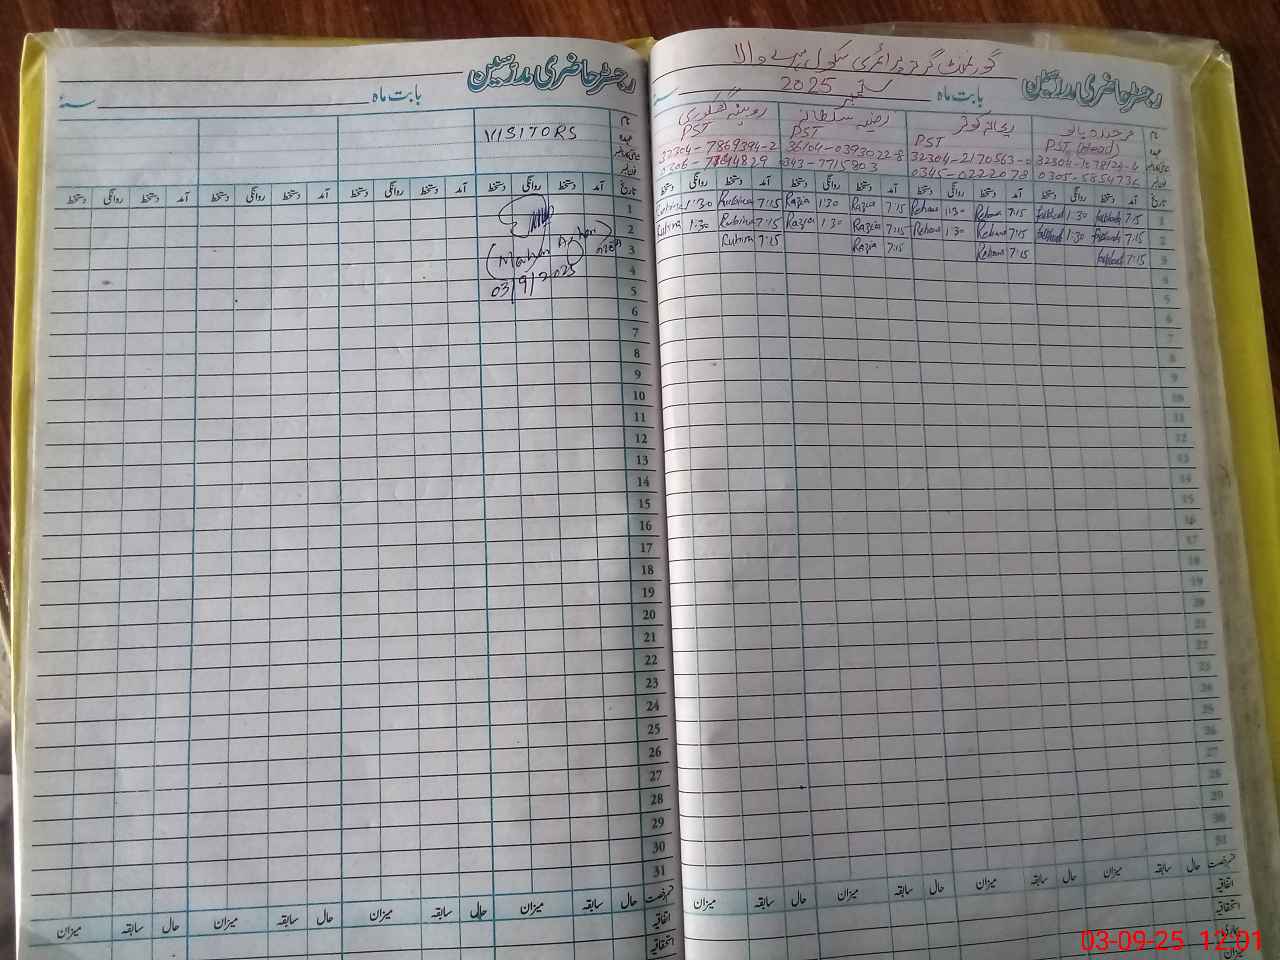 رجسٹر حاضری مدرسین
بابت ماہ
سنہ
VISITORS
تاریخ
آمد دستخط روانگی دستخط آمد دستخط روانگی دستخط آمد دستخط روانگی دستخط آمد دستخط روانگی دستخط
1
2
3
4
5
03/9/2025
6
7
8
9
10
11
12
13
14
15
16
17
18
19
20
21
22
23
24
25
26
27
28
29
30
31
قسم رخصت حال سابقہ میزان حال سابقہ میزان حال سابقہ میزان حال سابقہ میزان
اتفاقیہ
استحقاقیہ
گورنمنٹ گرلز پرائمری سکول والا
رجسٹر حاضری مدرسین
بابت ماہ ستمبر 2025
نام ریحانہ کوثر رضیہ سلطانہ روبینہ
عہدہ PST (Head) PST PST PST
32304-2170563-0 36104-0393022-8 32304-7869394-2
فون نمبر 0305-5854736 0345-0222078 0343-7715803
تاریخ آمد دستخط روانگی دستخط آمد دستخط روانگی دستخط آمد دستخط روانگی دستخط آمد دستخط روانگی دستخط
1 7:15 1:30 7:15 Rehana 1:30 Rehana 7:15 Razia 1:30 Razia 7:15 Rubina 1:30 Rubina
2 7:15 1:30 7:15 Rehana 1:30 Rehana 7:15 Razia 1:30 Razia 7:15 Rubina 1:30 Rubina
3 7:15 7:15 Rehana 7:15 Razia 7:15 Rubina
4
5
6
7
8
9
10
11
12
13
14
15
16
17
18
19
20
21
22
23
24
25
26
27
28
29
30
31
قسم رخصت حال سابقہ میزان حال سابقہ میزان حال سابقہ میزان حال سابقہ میزان
اتفاقیہ
استحقاقیہ
بیماری
میزان
03-09-25 12:01